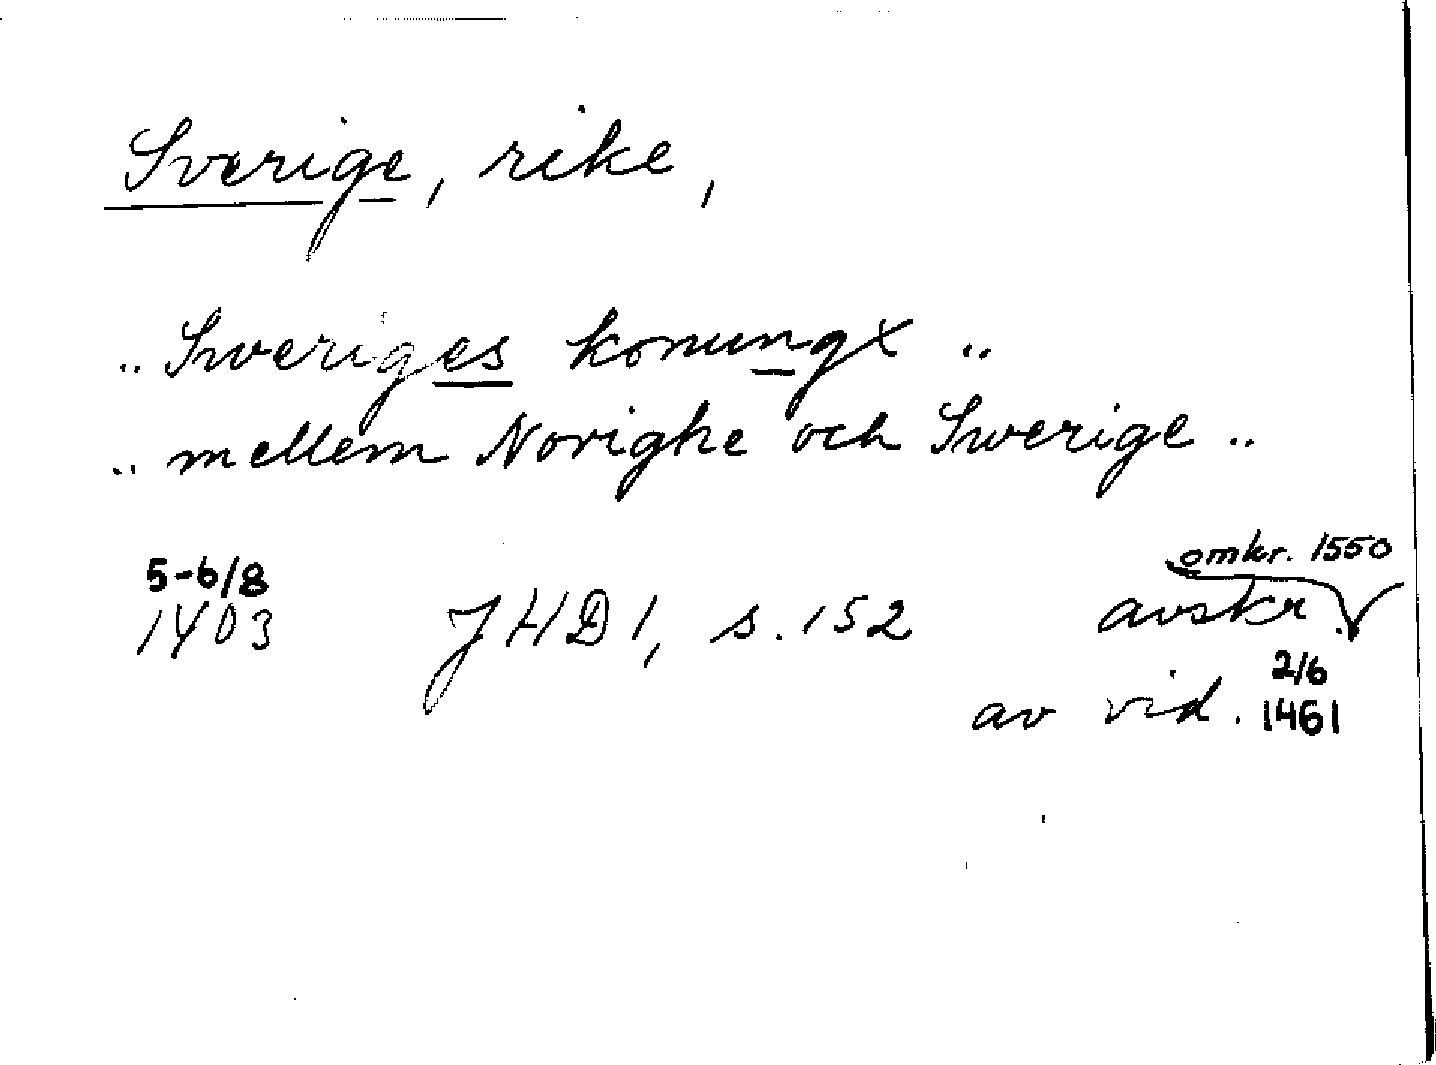 Sverige, rike,
.. Sweriges konungx ..
.. mellem Norighe och Swerige ..
5-6/8
1403 JHD 1, s. 152
omkr. 1550
avskr.
av vid. 2/6 1461